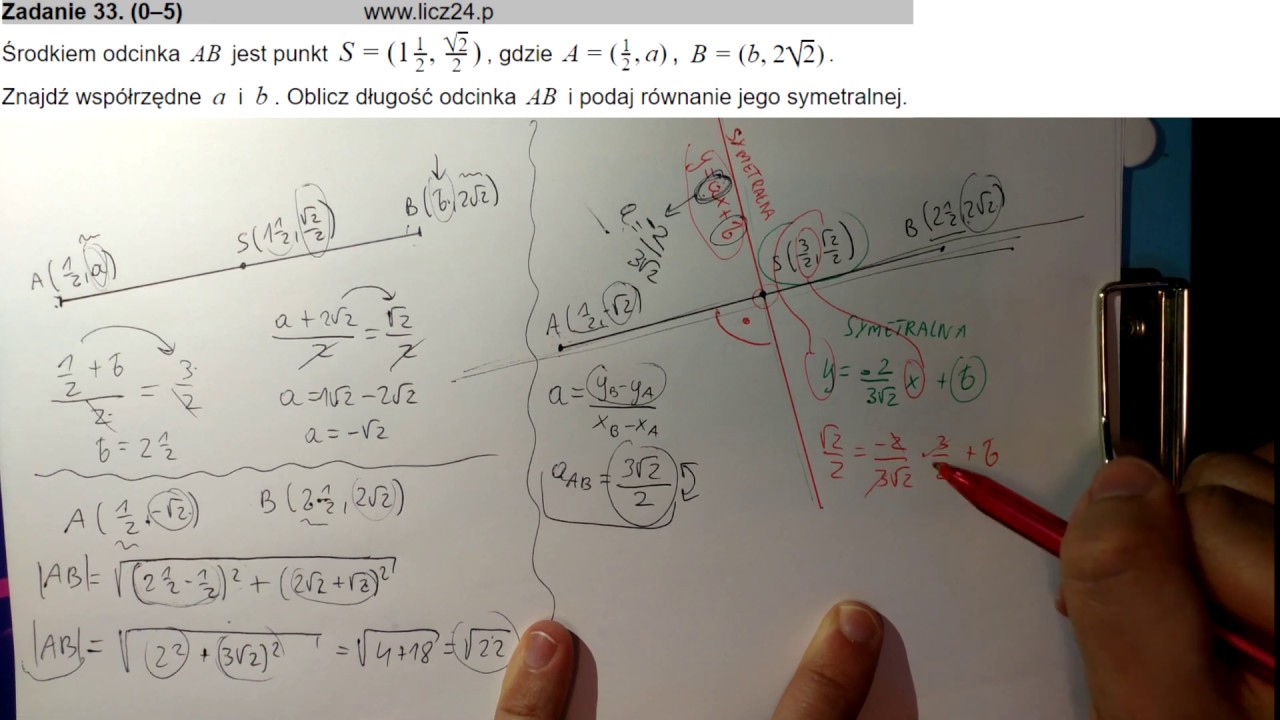 Zadanie 33. (0–5) www.licz24.p
Środkiem odcinka AB jest punkt S = (1 1/2, √2/2), gdzie A = (1/2, a), B = (b, 2√2).
Znajdź współrzędne a i b. Oblicz długość odcinka AB i podaj równanie jego symetralnej.
A(1/2, a)
S(1 1/2, √2/2)
B(b, 2√2)
(1/2 + b)/2 = 3/2
b = 2 1/2
(a + 2√2)/2 = √2/2
a = 1√2 - 2√2
a = -√2
A(1/2, -√2)
B(2 1/2, 2√2)
|AB| = √((2 1/2 - 1/2)² + (2√2 + √2)²)
|AB| = √(2² + (3√2)²) = √(4+18) = √22
SYMETRALNA
y = ax + b
A(1/2, -√2)
S(3/2, √2/2)
B(2 1/2, 2√2)
a = (yB - yA)/(xB - xA)
aAB = 3√2/2
SYMETRALNA
y = -2/(3√2) x + b
√2/2 = -2/(3√2) · 3/2 + b